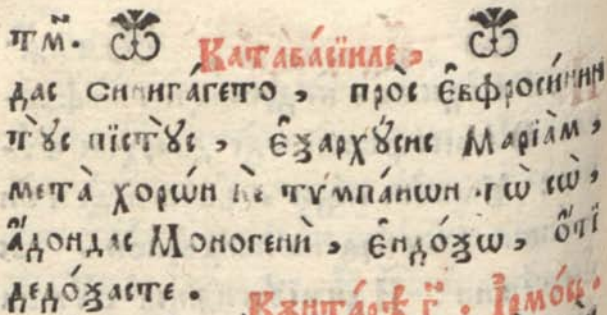 пм҃н. Катавасїиле,
дас синигáгето, прòс є҆вфроси́нин
тꙋ̀с пїстꙋ̀с, є҆ѯархꙋ́сис Марїàм,
метà хорѡ́н кѐ тѵмпáнѡн тѡ̀ сѡ̀,
а҆́дондас Моногенѝ, є҆ндóѯѡ, ѻ҆́тї
дедóѯасте.
Кѫнтáрѣ г҃. І҆рмóсꙋ.